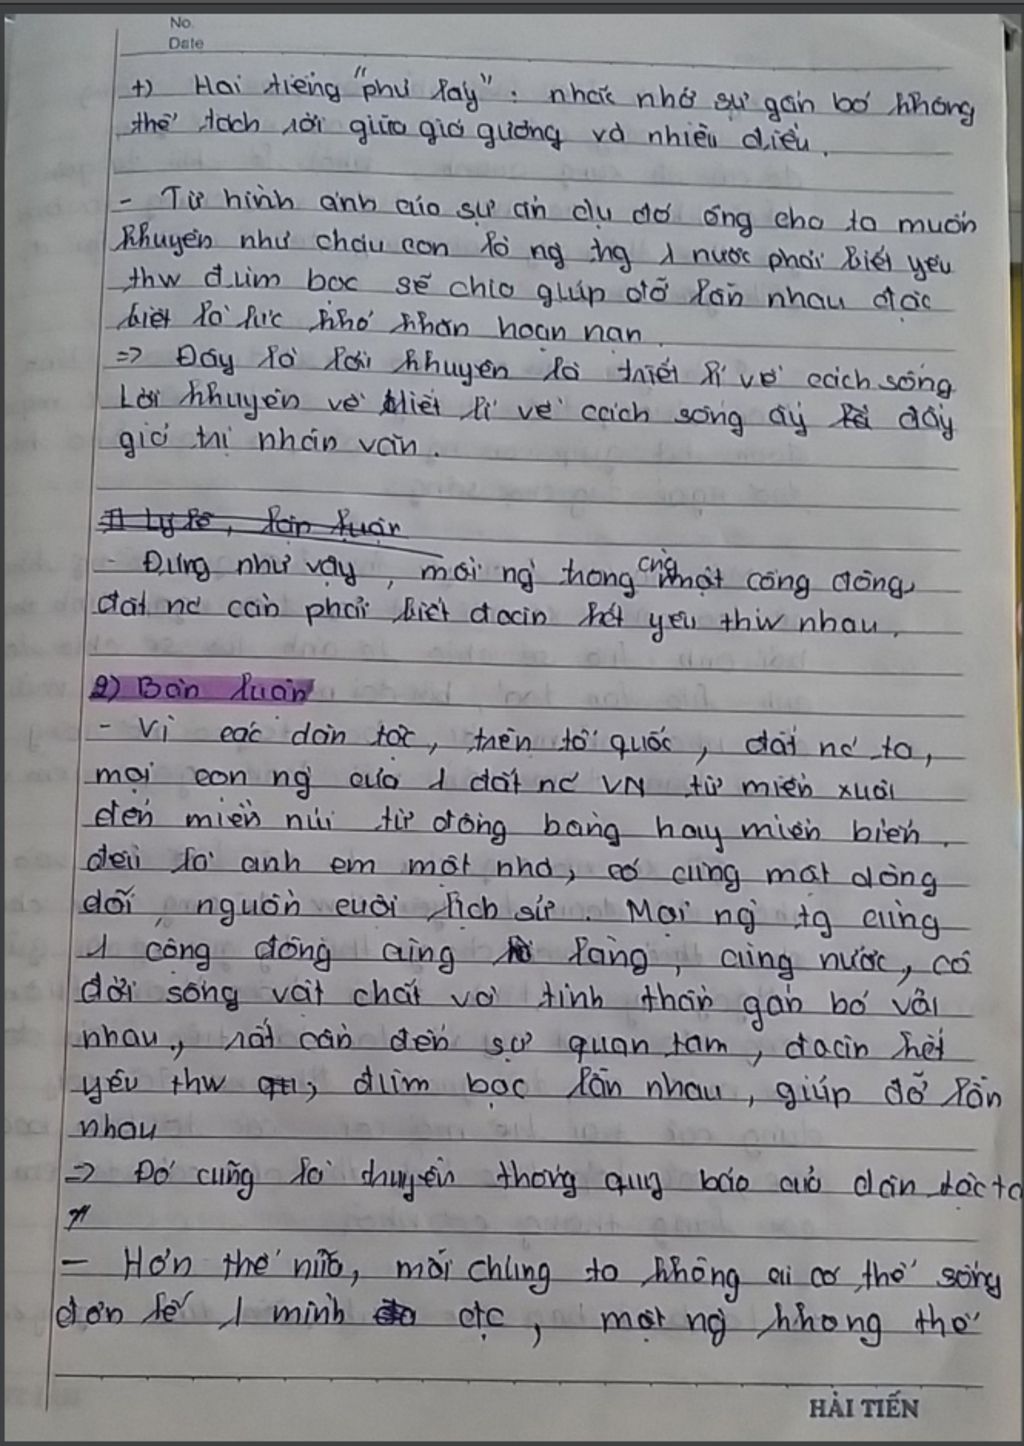 No.
Date
+) Hai tiếng "phủ lấy": nhắc nhở sự gắn bó không
thể tách rời giữa giá gương và nhiễu điều.
- Từ hình ảnh của sự ẩn dụ đó ông cha ta muốn
khuyên như cháu con là ng tng 1 nước phải biết yêu
thw đùm bọc sẽ chia giúp đỡ lẫn nhau đặc
biệt là lúc khó khăn hoạn nạn.
=> Đây là lời khuyên là triết lí về cách sống
Lời khuyên về triết lí về cách sống ấy đầy
giá trị nhân văn.
II Lý lẽ, lập luận
- Đúng như vậy, mọi ng trong cùng một cộng đồng,
đất nc cần phải biết đoàn kết yêu thw nhau.
2) Bàn luận
- Vì các dân tộc, trên tổ quốc, đất nc ta,
mọi con ng của 1 đất nc VN từ miền xuôi
đến miền núi từ đồng bằng hay miền biển.
đều là anh em một nhà, có cùng một dòng
dõi, nguồn cuội lịch sử. Mọi ng tg cùng
1 cộng đồng cùng làng, cùng nước, có
đời sống vật chất và tinh thần gắn bó với
nhau, rất cần đến sự quan tâm, đoàn kết
yêu thw, đùm bọc lẫn nhau, giúp đỡ lẫn
nhau
=> Đó cũng là truyền thống quý báo của dân tộc ta
- Hơn thế nữa, mỗi chúng ta không ai có thể sống
đơn lẻ 1 mình đc, một ng không thể
HẢI TIẾN